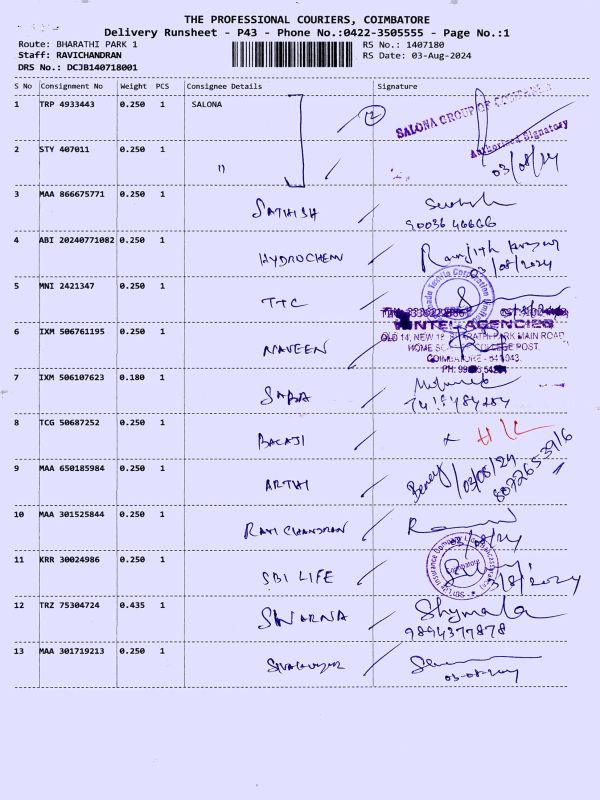 THE PROFESSIONAL COURIERS, COIMBATORE
Delivery Runsheet - P43 - Phone No.:0422-3505555 - Page No.:1
Route: BHARATHI PARK 1 RS No.: 1407180
Staff: RAVICHANDRAN RS Date: 03-Aug-2024
DRS No.: DCJB140718001
S No Consignment No Weight PCS Consignee Details Signature
1 TRP 4933443 0.250 1 SALONA 12 SALONA GROUP OF
Authorised Signatory
2 STY 407011 0.250 1 " 03/08/24
3 MAA 866675771 0.250 1 SATHISH
90036 46666
4 ABI 20240771082 0.250 1 HYDROCHEM Ranjith
03/08/2024
5 MNI 2421347 0.250 1 TTC
AGENCIES
6 IXM 506761195 0.250 1 NAVEEN OLD 14, NEW 18, BHARATHI PARK MAIN ROAD
HOME COLLEGE POST,
COIMBATORE - 641043.
7 IXM 506107623 0.180 1 SABA
8 TCG 50687252 0.250 1 BALAJI
9 MAA 650185984 0.250 1 ARTHI 03/08/24
10 MAA 301525844 0.250 1 RAVICHANDRAN
11 KRR 30024986 0.250 1 SBI LIFE 3/8/2024
12 TRZ 75304724 0.435 1 SWARNA Shymala
9894377878
13 MAA 301719213 0.250 1
03-08-2024